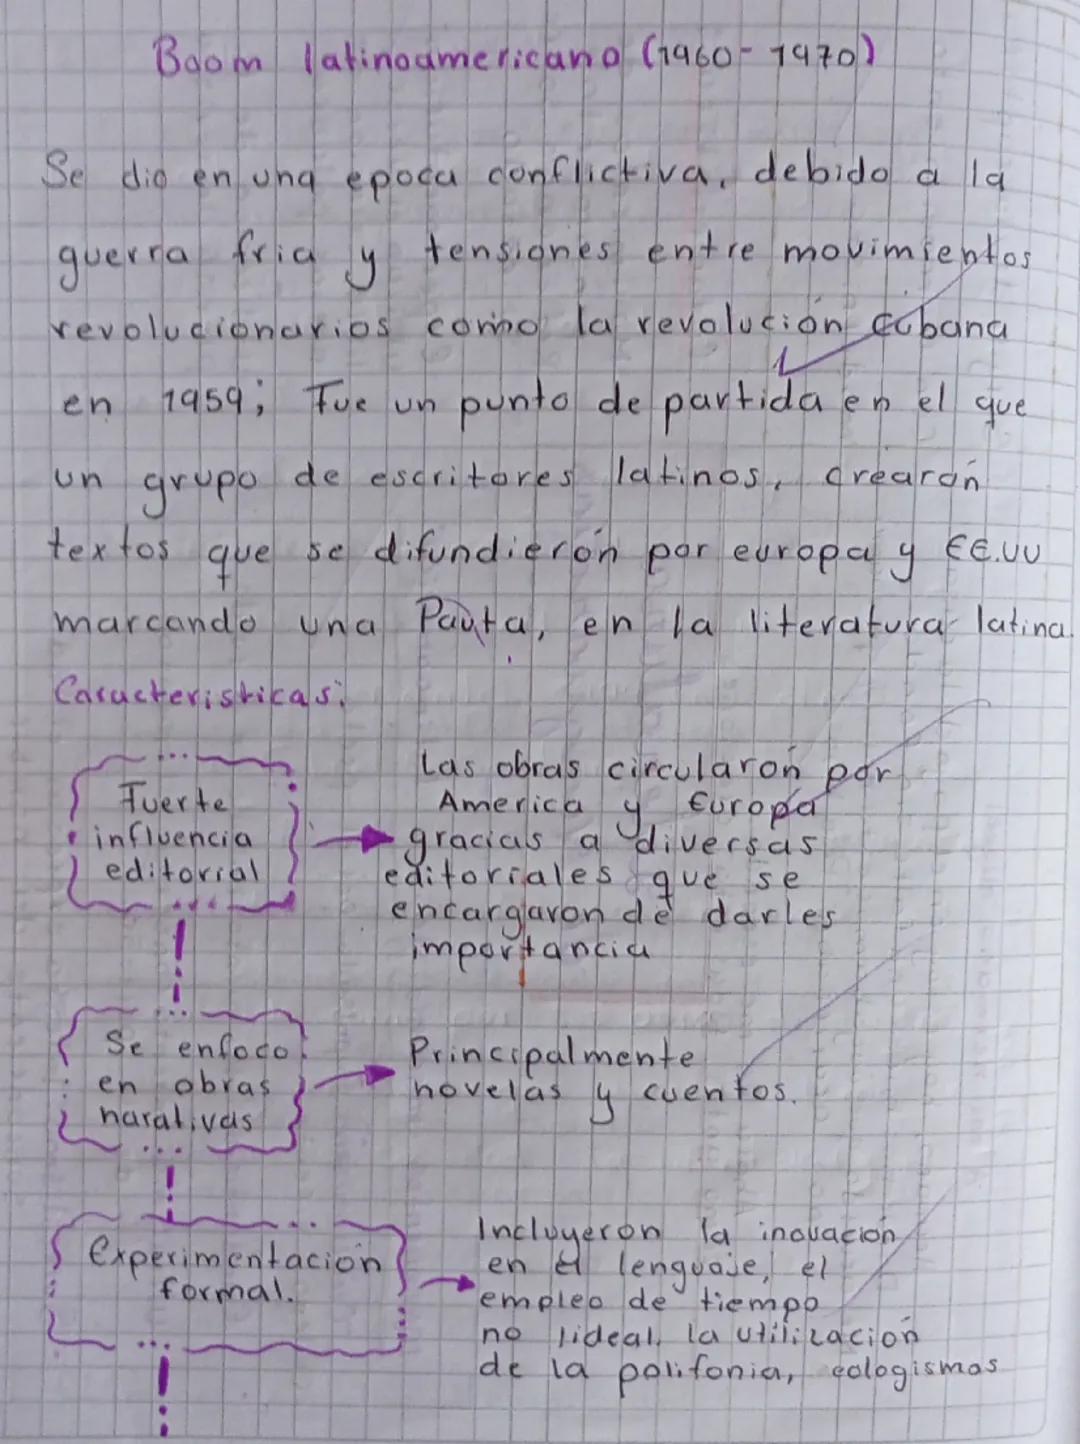 Boom latinoamericano (1960-1970)
Se dio en una epoca conflictiva, debido a la
guerra fria y tensiones entre movimientos
revolucionarios como la revolución cubana
en 1959; Fue un punto de partida en el que
un grupo de escritores latinos, crearón
textos que se difundierón por europa y EE.UU
marcando una Pauta, en la literatura latina.
Caracteristicas:
Fuerte
influencia
editorial
Las obras circularón por
America y Europa
gracias a diversas
editoriales que se
encargaron de darles
importancia
Se enfoco
en obras
narativas
Principalmente
novelas y cuentos.
Experimentación
formal.
Incluyeron la inovación
en el lenguaje, el
empleo de tiempo
no lideal, la utilización
de la polifonia, eologismos